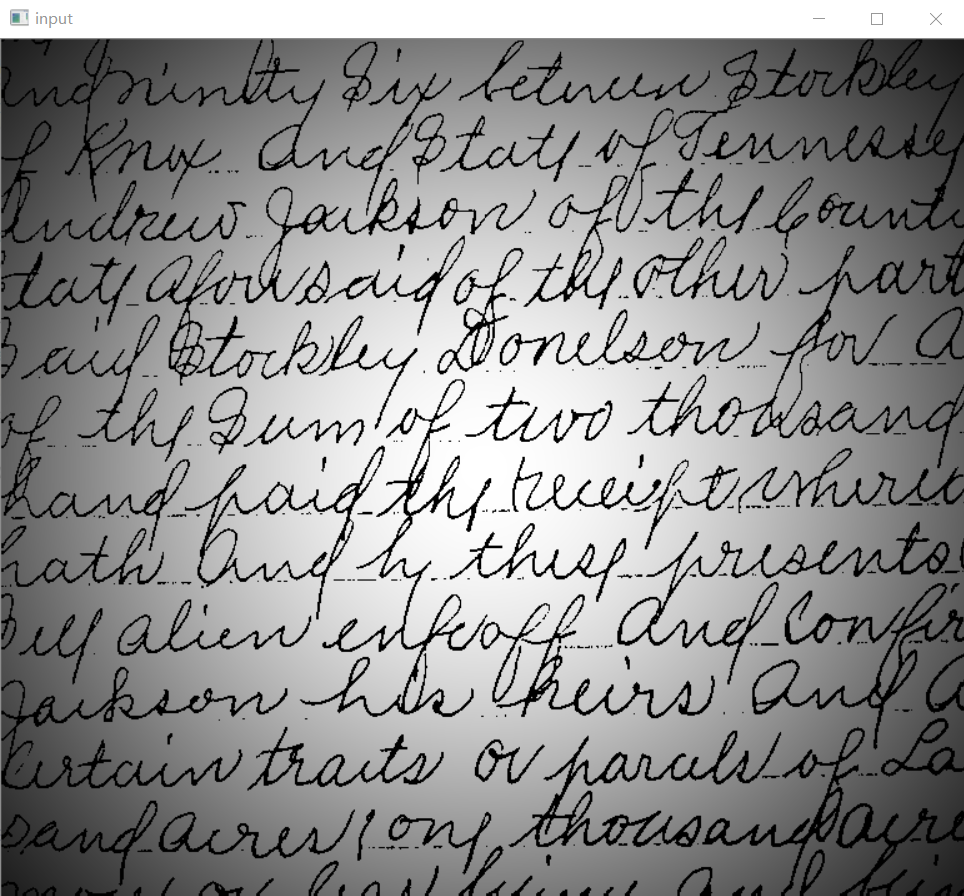 input
and Ninety Six between Stockley
of Knox and State of Tennessey
Andrew Jackson of the County
State aforesaid of the other part
Said Stockley Donelson for a
of the Sum of two thousand
hand paid the receipt where
hath and by these presents
Sell alien enfeoff and Confir
Jackson his heirs and a
Certain traits or parcels of La
sand acres one thousand acre